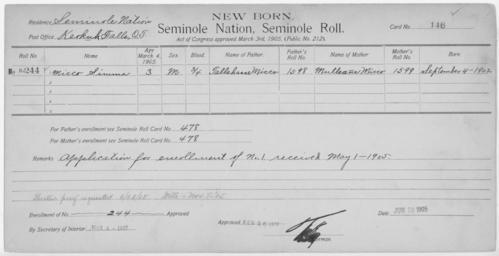 NEW BORN.
Residence Seminole Nation
Seminole Nation, Seminole Roll.
Card No. 146
Post Office. Keokuk Falls, O.T.
Act of Congress approved March 3rd, 1905, (Public No. 212).
Roll No. Name Age March 4, 1905. Sex. Blood. Name of Father. Father's Roll No. Name of Mother. Mother's Roll No. Born
244 1 Micco Simma 3 M. 3/4 1598 Micco 1599 September 4-1902
2
3
4
For Father's enrollment see Seminole Roll Card No. 478
For Mother's enrollment see Seminole Roll Card No. 478
Remarks Application for enrollment of No. 1 received May 1-1905.
Further proof requested
Enrollment of No. 244 Approved
Approved
Date JUN 1905
By Secretary of Interior